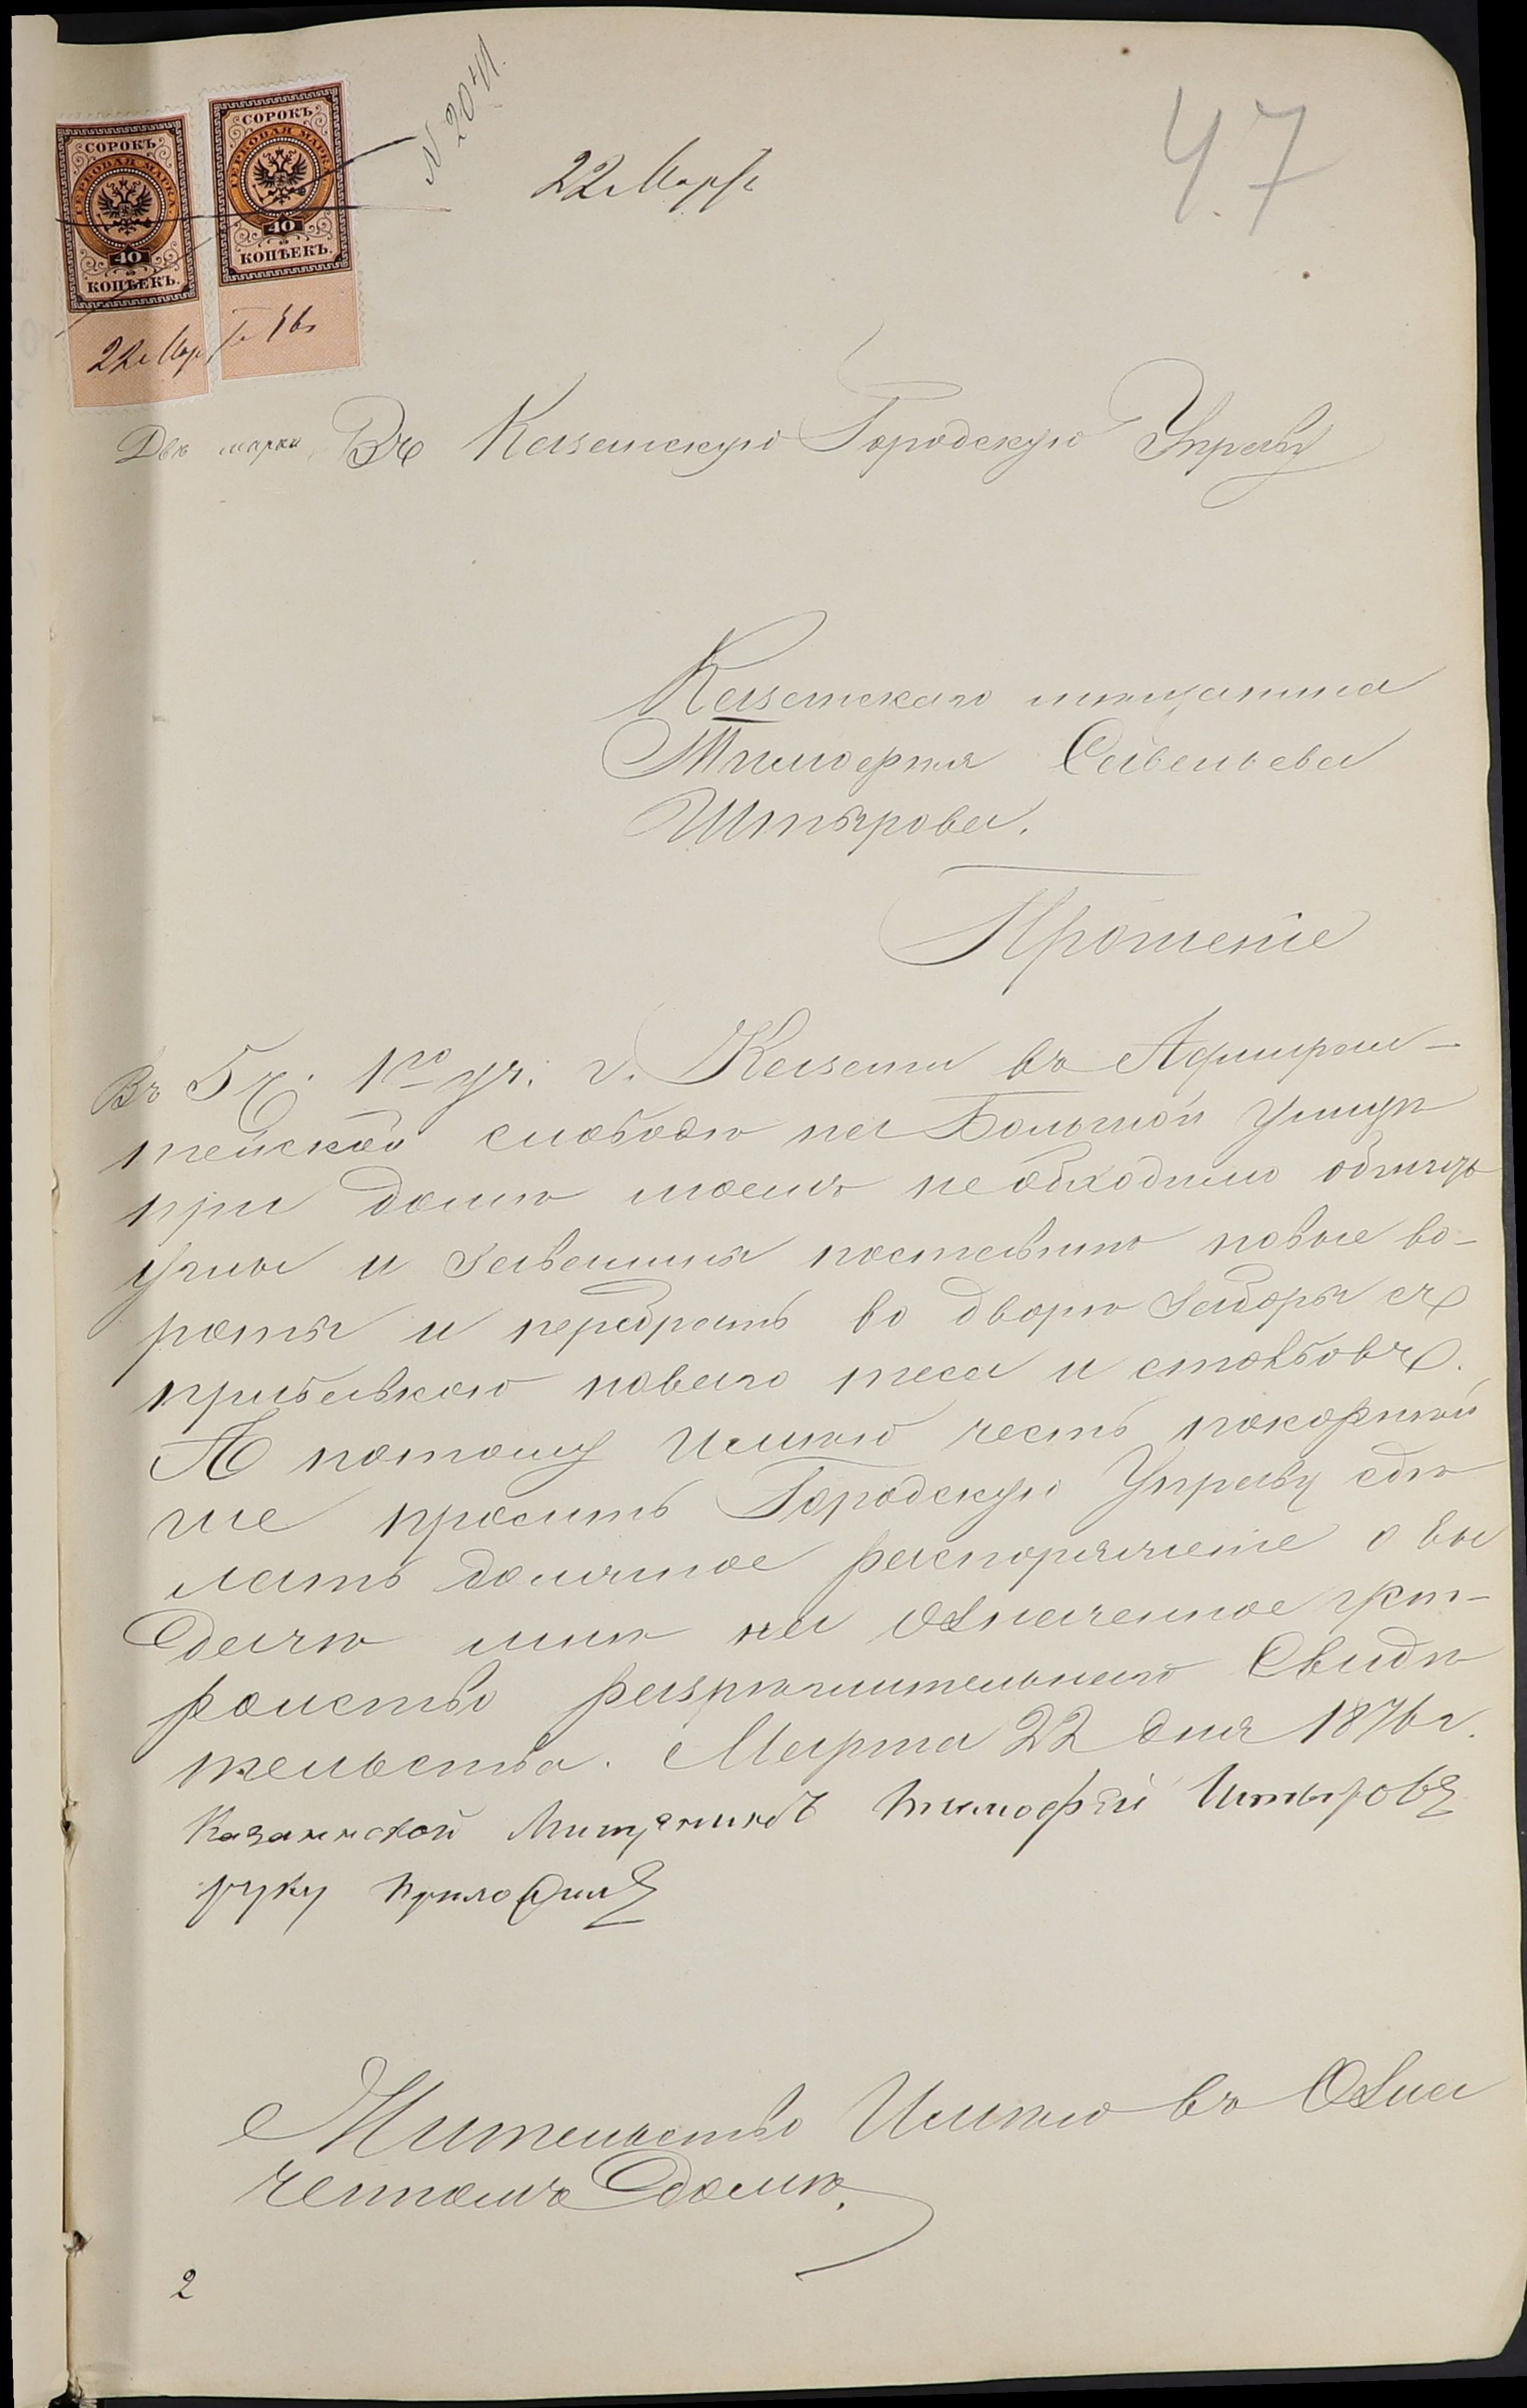 N 2041.
22 Марта
47
СОРОКЪ
ГЕРБОВАЯ МАРКА
40
КОПѢЕКЪ.
СОРОКЪ
ГЕРБОВАЯ МАРКА
40
КОПѢЕКЪ.
22 Марта 76
Двѣ марки
Въ Казанскую Городскую Управу
Казанскаго мѣщанина
Тимофея Савельева
Штырова.
Прошеніе
Въ 5 ч. 1го уч. г. Казани въ Адмирал-
тейской слободѣ на Большой улицѣ
при домѣ моемъ необходимо обшить
углы и завалины поставить новые во-
роты и перебрать во дворѣ заборы съ
прибавкою новаго теса и столбовъ.
А потому имѣю честь покорнѣй
ше просить Городскую Управу сдѣ
лать должное распоряженіе о вы
дачѣ мнѣ на означенное уст-
ройство разрѣшительнаго Свидѣ
тельства. Марта 22 дня 1876 г.
Казанской Мищанинъ Тимофѣй Штыровъ
руку приложилъ
Жительство Имѣю въ Озна
ченномъ домѣ.
2